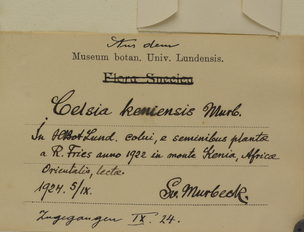 Aus dem
Museum botan. Univ. Lundensis.
Flora Suecica
Celsia keniensis Murb.
In H. Bot. Lund. colui, e seminibus plantæ
a R. Fries anno 1922 in monte Kenia, Africæ
Orientalis, lectæ.
1924. 5/IX. Sv. Murbeck.
Zugegangen IX. 24.